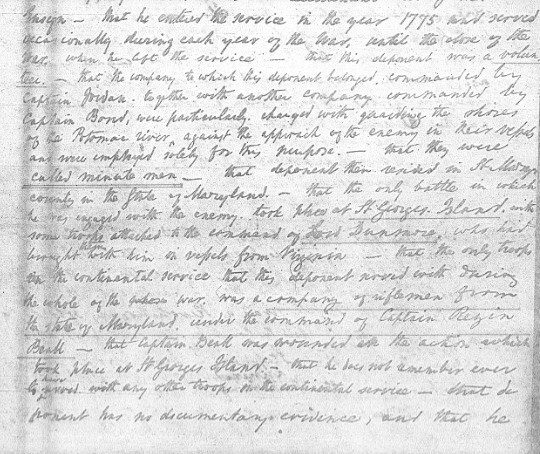 Ensign – that he entered the service in the year 1775 and served
occasionally during each year of the War, until the close of the
war, when he left the service – that this deponent was a volun
teer – that the company to which this deponent belonged, commanded by
Captain Jordan, together with another company commanded by
Captain Bond, were particularly charged with guarding the shores
of the Potomac river, against the approach of the enemy in their vessels
and were employed solely for this purpose – that they were
called minute men – that deponent then resided in St. Marys
county in the State of Maryland – that the only battle in which
he was engaged with the enemy took place at St. Georges Island, with
some troops attached to the command of Lord Dunmore, who had
brought them with him in vessels from Virginia – that the only troops
in the continental service that this deponent served with during
the whole of the war, was a company of riflemen from
the state of Maryland under the command of Captain Rezin
Beall – that Captain Beall was wounded in the action which
took place at St Georges Island – that he does not remember ever
to have served with any other troops in the continental service – that de
ponent has no documentary evidence, and that he